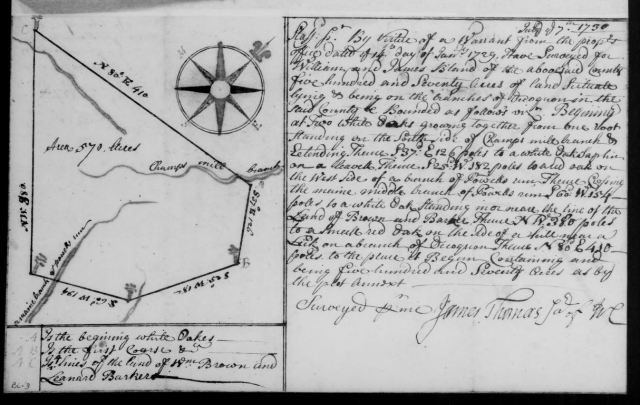 C
N 80° E 410
Area 570 Acres
Champs mill branch
B
N W 380
S 25 W 182
main branch of Powells run
A Is the beginning white Oakes
A B Is the first Course &
lines of the land of Wm Brown and
Leanard Barker
July ye 7th 1730
Staff. Sr. By Virtue of a Warrant from the
Office dated ye day of Janry 1729, Have Surveyed for
William and James Bland of the aforesaid County
five hundred and Seventy Acres of Land Situate
lying & being on the branches of Occoquon in the
Said County & Bounded as follows viz. Beginning
at Two White Oaks growing together from one root
Standing on the South side of Champs mill branch &
Extending Thence S 37° E 126 poles to a white Oak Saplin
on a Thence S 25 W 182 poles to a red oak on
the West side of a branch of Powells run Thence Crossing
the maine middle branch of Powells run W 154
poles to a white Oak Standing in or near the line of the
Land of Brown and Barker Thence N W 380 poles
to a Small red Oak on the side of a hill near a
on a branch of Occoquon Thence N 80° E 410
poles to the place it Begun Containing and
being five hundred and Seventy Acres as by
the plot Annext
Surveyed pr me James Thomas